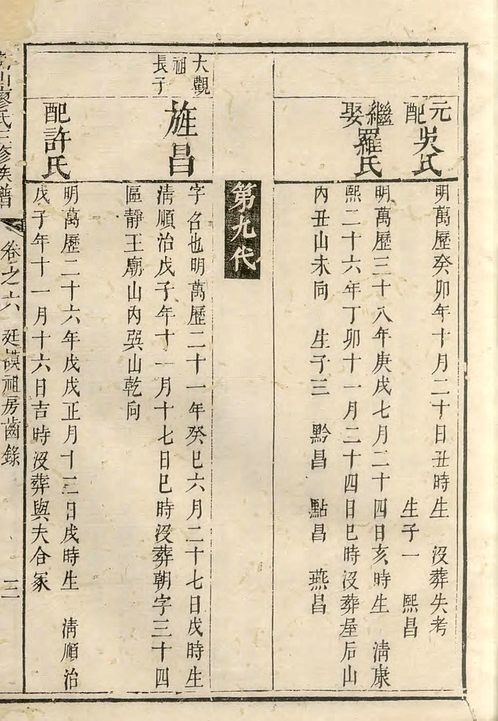 元配吳氏
明萬歷癸卯年十月二十日丑時生 沒葬失考
生子一 熙昌
繼娶羅氏
明萬歷三十八年庚戌七月二十四日亥時生 清康
熙二十六年丁卯十一月二十四日巳時沒葬屋后山
內丑山未向 生子三 黔昌 點昌 燕昌
第九代
大觀祖長子
旌昌
字名也明萬歷二十一年癸巳六月二十七日戌時生
淸順治戊子年十一月十七日巳時沒葬朝字三十四
區靜王廟山內巽山乾向
配許氏
明萬歷二十六年戊戌正月十三日戌時生 淸順治
戊子年十一月十六日吉時沒葬與夫合冢
山廖氏三修族譜
卷之六 廷謨祖房齒錄 三